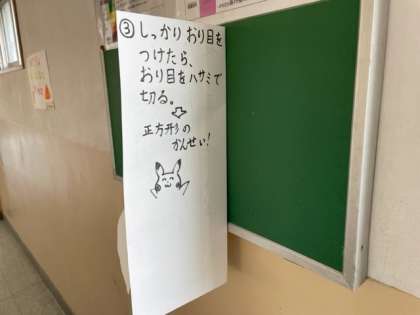 ③しっかりおり目を
つけたら、
おり目をハサミで
切る。
⇩
正方形の
かんせい!